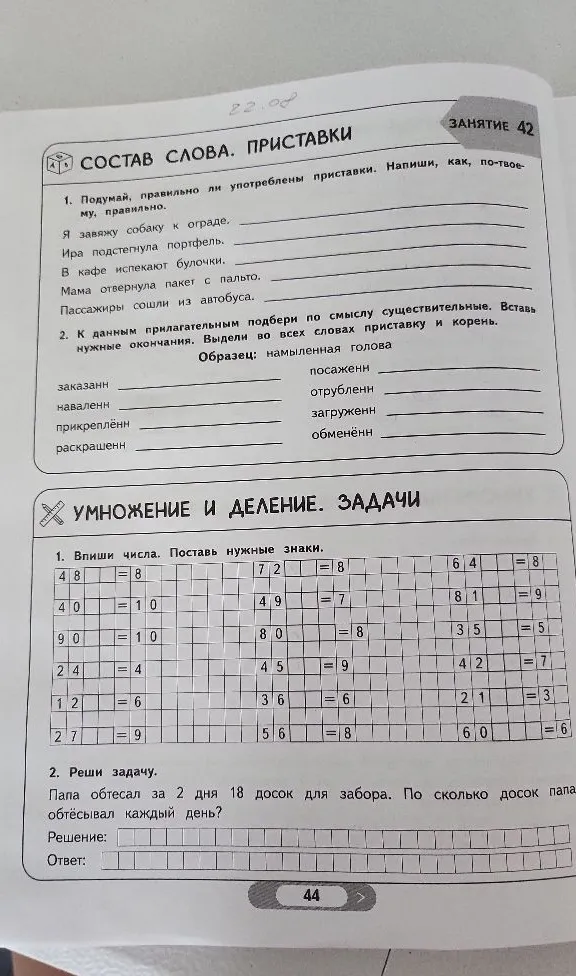 22.08
ЗАНЯТИЕ 42
СОСТАВ СЛОВА. ПРИСТАВКИ
1. Подумай, правильно ли употреблены приставки. Напиши, как, по-твое-
му, правильно.
Я завяжу собаку к ограде.
Ира подстегнула портфель.
В кафе испекают булочки.
Мама отвернула пакет с пальто.
Пассажиры сошли из автобуса.
2. К данным прилагательным подбери по смыслу существительные. Вставь
нужные окончания. Выдели во всех словах приставку и корень.
Образец: намыленная голова
заказанн посаженн
наваленн отрубленн
прикреплённ загруженн
раскрашенн обменённ
УМНОЖЕНИЕ И ДЕЛЕНИЕ. ЗАДАЧИ
1. Впиши числа. Поставь нужные знаки.
48 =8 72 =8 64 =8
40 =10 49 =7 81 =9
90 =10 80 =8 35 =5
24 =4 45 =9 42 =7
12 =6 36 =6 21 =3
27 =9 56 =8 60 =6
2. Реши задачу.
Папа обтесал за 2 дня 18 досок для забора. По сколько досок папа
обтёсывал каждый день?
Решение:
Ответ:
44